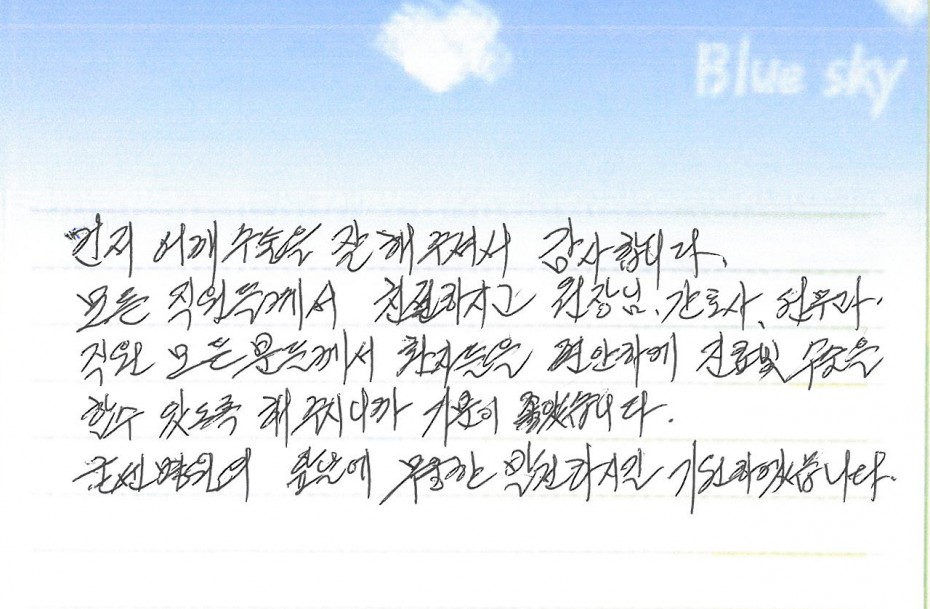 Blue sky
먼저 어깨 수술을 잘 해 주셔서 감사합니다.
모든 직원분들께서 친절하시고 원장님, 간호사, 원무과
직원 모든 분들께서 환자들을 편안하게 진료 및 수술을
할 수 있도록 해 주시니까 기분이 좋았습니다.
병원의 앞날에 무궁한 발전하시길 기원하겠습니다.